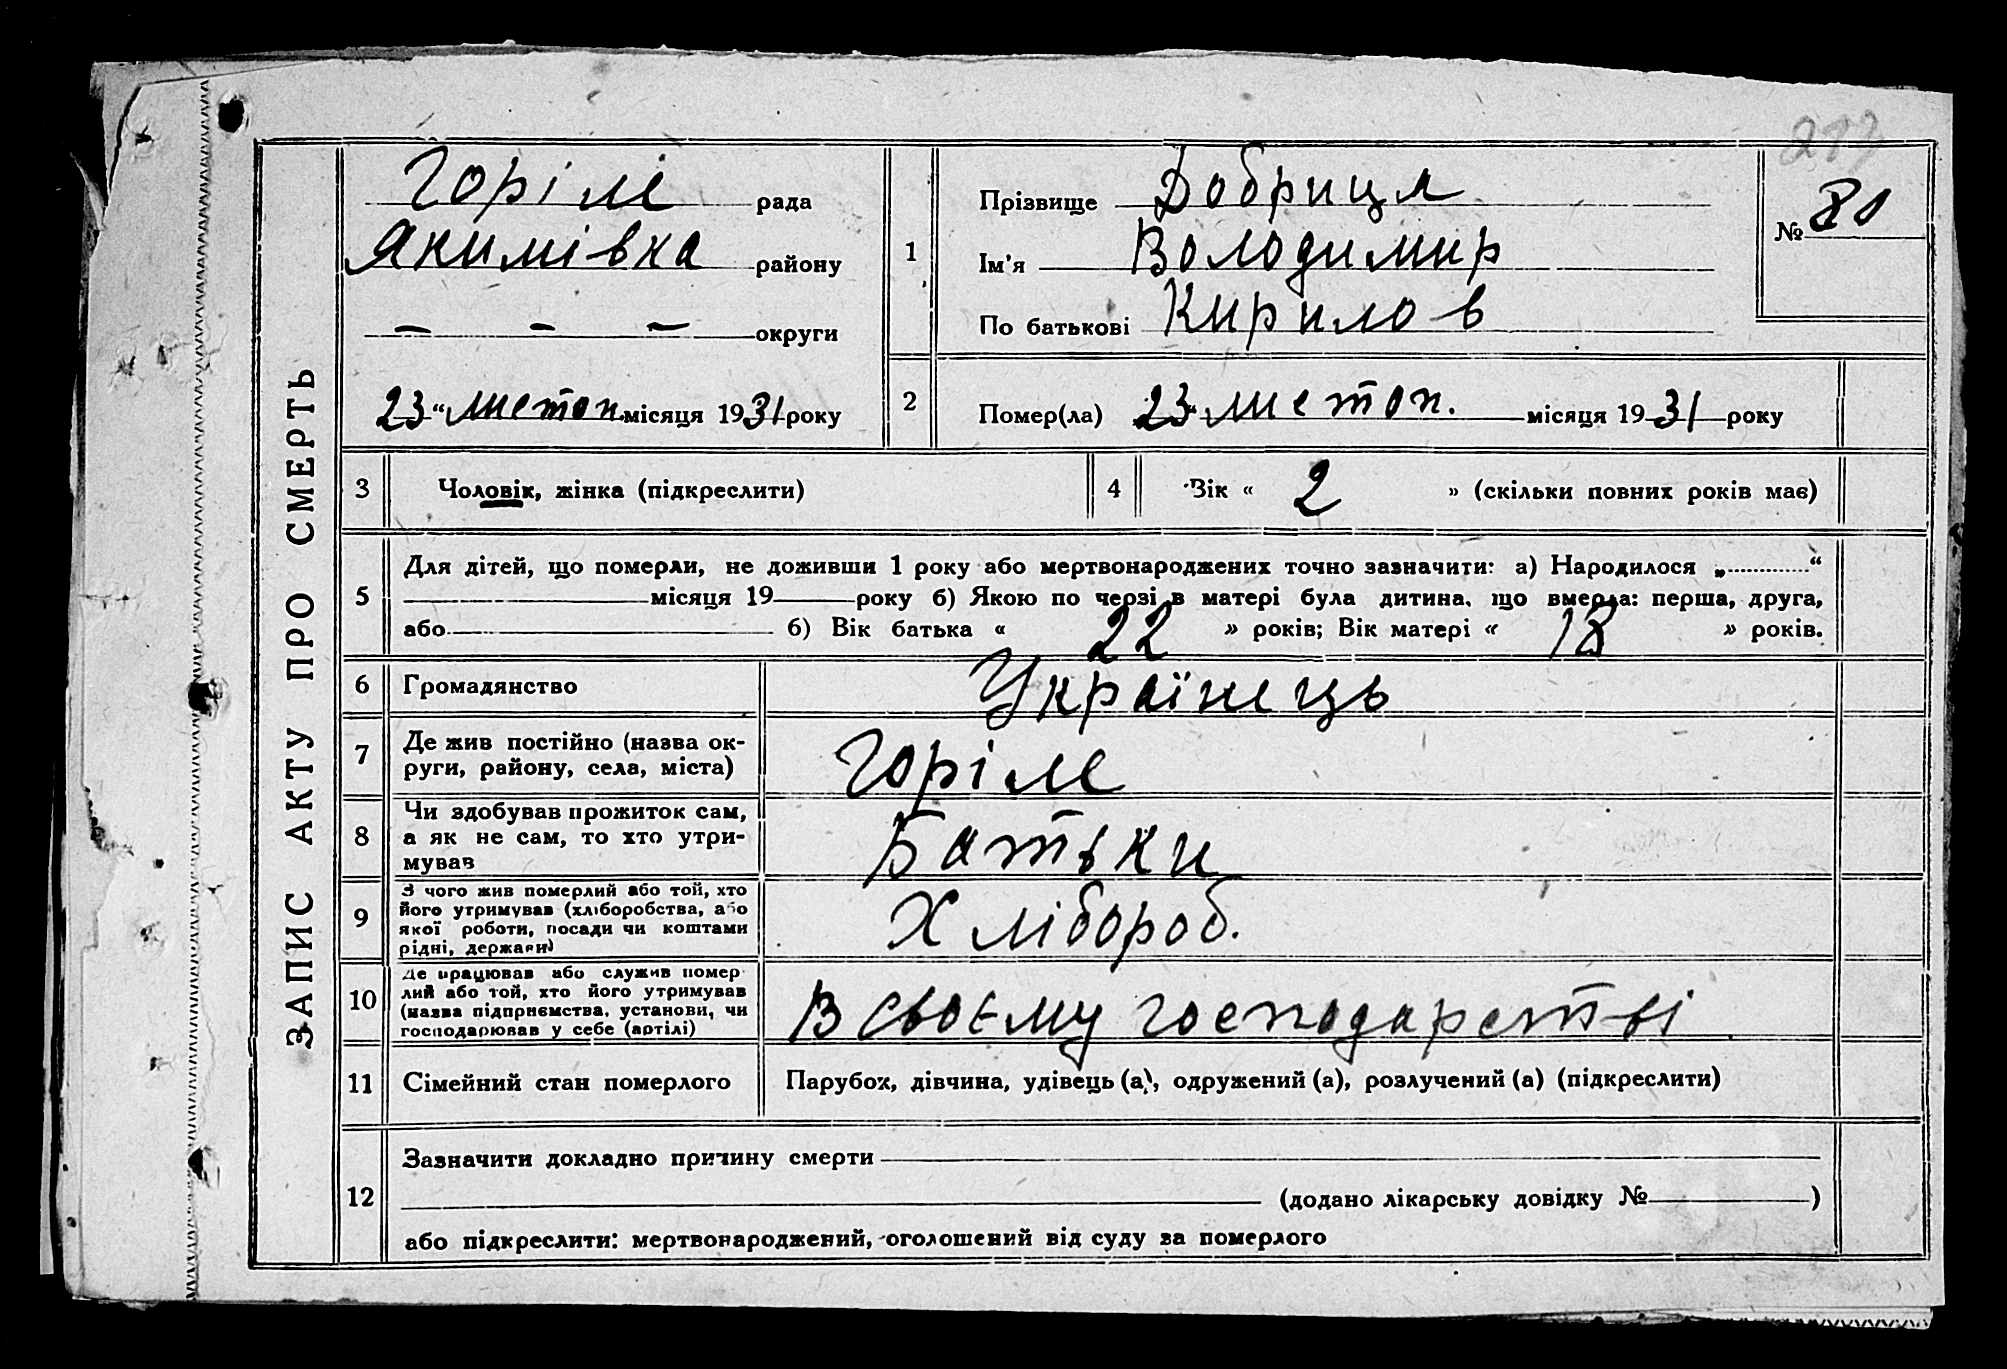 ЗАПИС АКТУ ПРО СМЕРТЬ
Горілє рада
Якимівка району
— — — округи
23 “ листоп. місяця 1931 року
1
Прізвище Добриця
Ім'я Володимир
По батькові Кирилов
№ 80
2 Помер(ла) 23 листоп. місяця 1931 року
3 Чоловік, жінка (підкреслити)
4 Вік « 2 » (скільки повних років має)
5 Для дітей, що померли, не доживши 1 року або мертвонароджених точно зазначити: а) Народилося „............“
місяця 19 року б) Якою по черзі в матері була дитина, що вмерла: перша, друга,
або б) Вік батька « 22 » років; Вік матері « 18 » років.
6 Громадянство Українець
7 Де жив постійно (назва ок-
руги, району, села, міста) Горілє
8 Чи здобував прожиток сам,
а як не сам, то хто утри-
мував Батьки
9 З чого жив померлий або той, хто
його утримував (хліборобства, або
якої роботи, посади чи коштами
рідні, держави) Хлібороб.
10 Де працював або служив помер-
лий або той, хто його утримував
(назва підприємства, установи, чи
господарював у себе (артілі) В своєму господарстві
11 Сімейний стан померлого Парубок, дівчина, удівець (а), одружений (а), розлучений (а) (підкреслити)
12 Зазначити докладно причину смерти
(додано лікарську довідку № )
або підкреслити: мертвонароджений, оголошений від суду за померлого